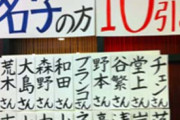 名字の方 10引
チェンさん
堂上さん
谷繁さん
野本さん
ブランコさん
和田さん
森野さん
大島さん
荒木さん